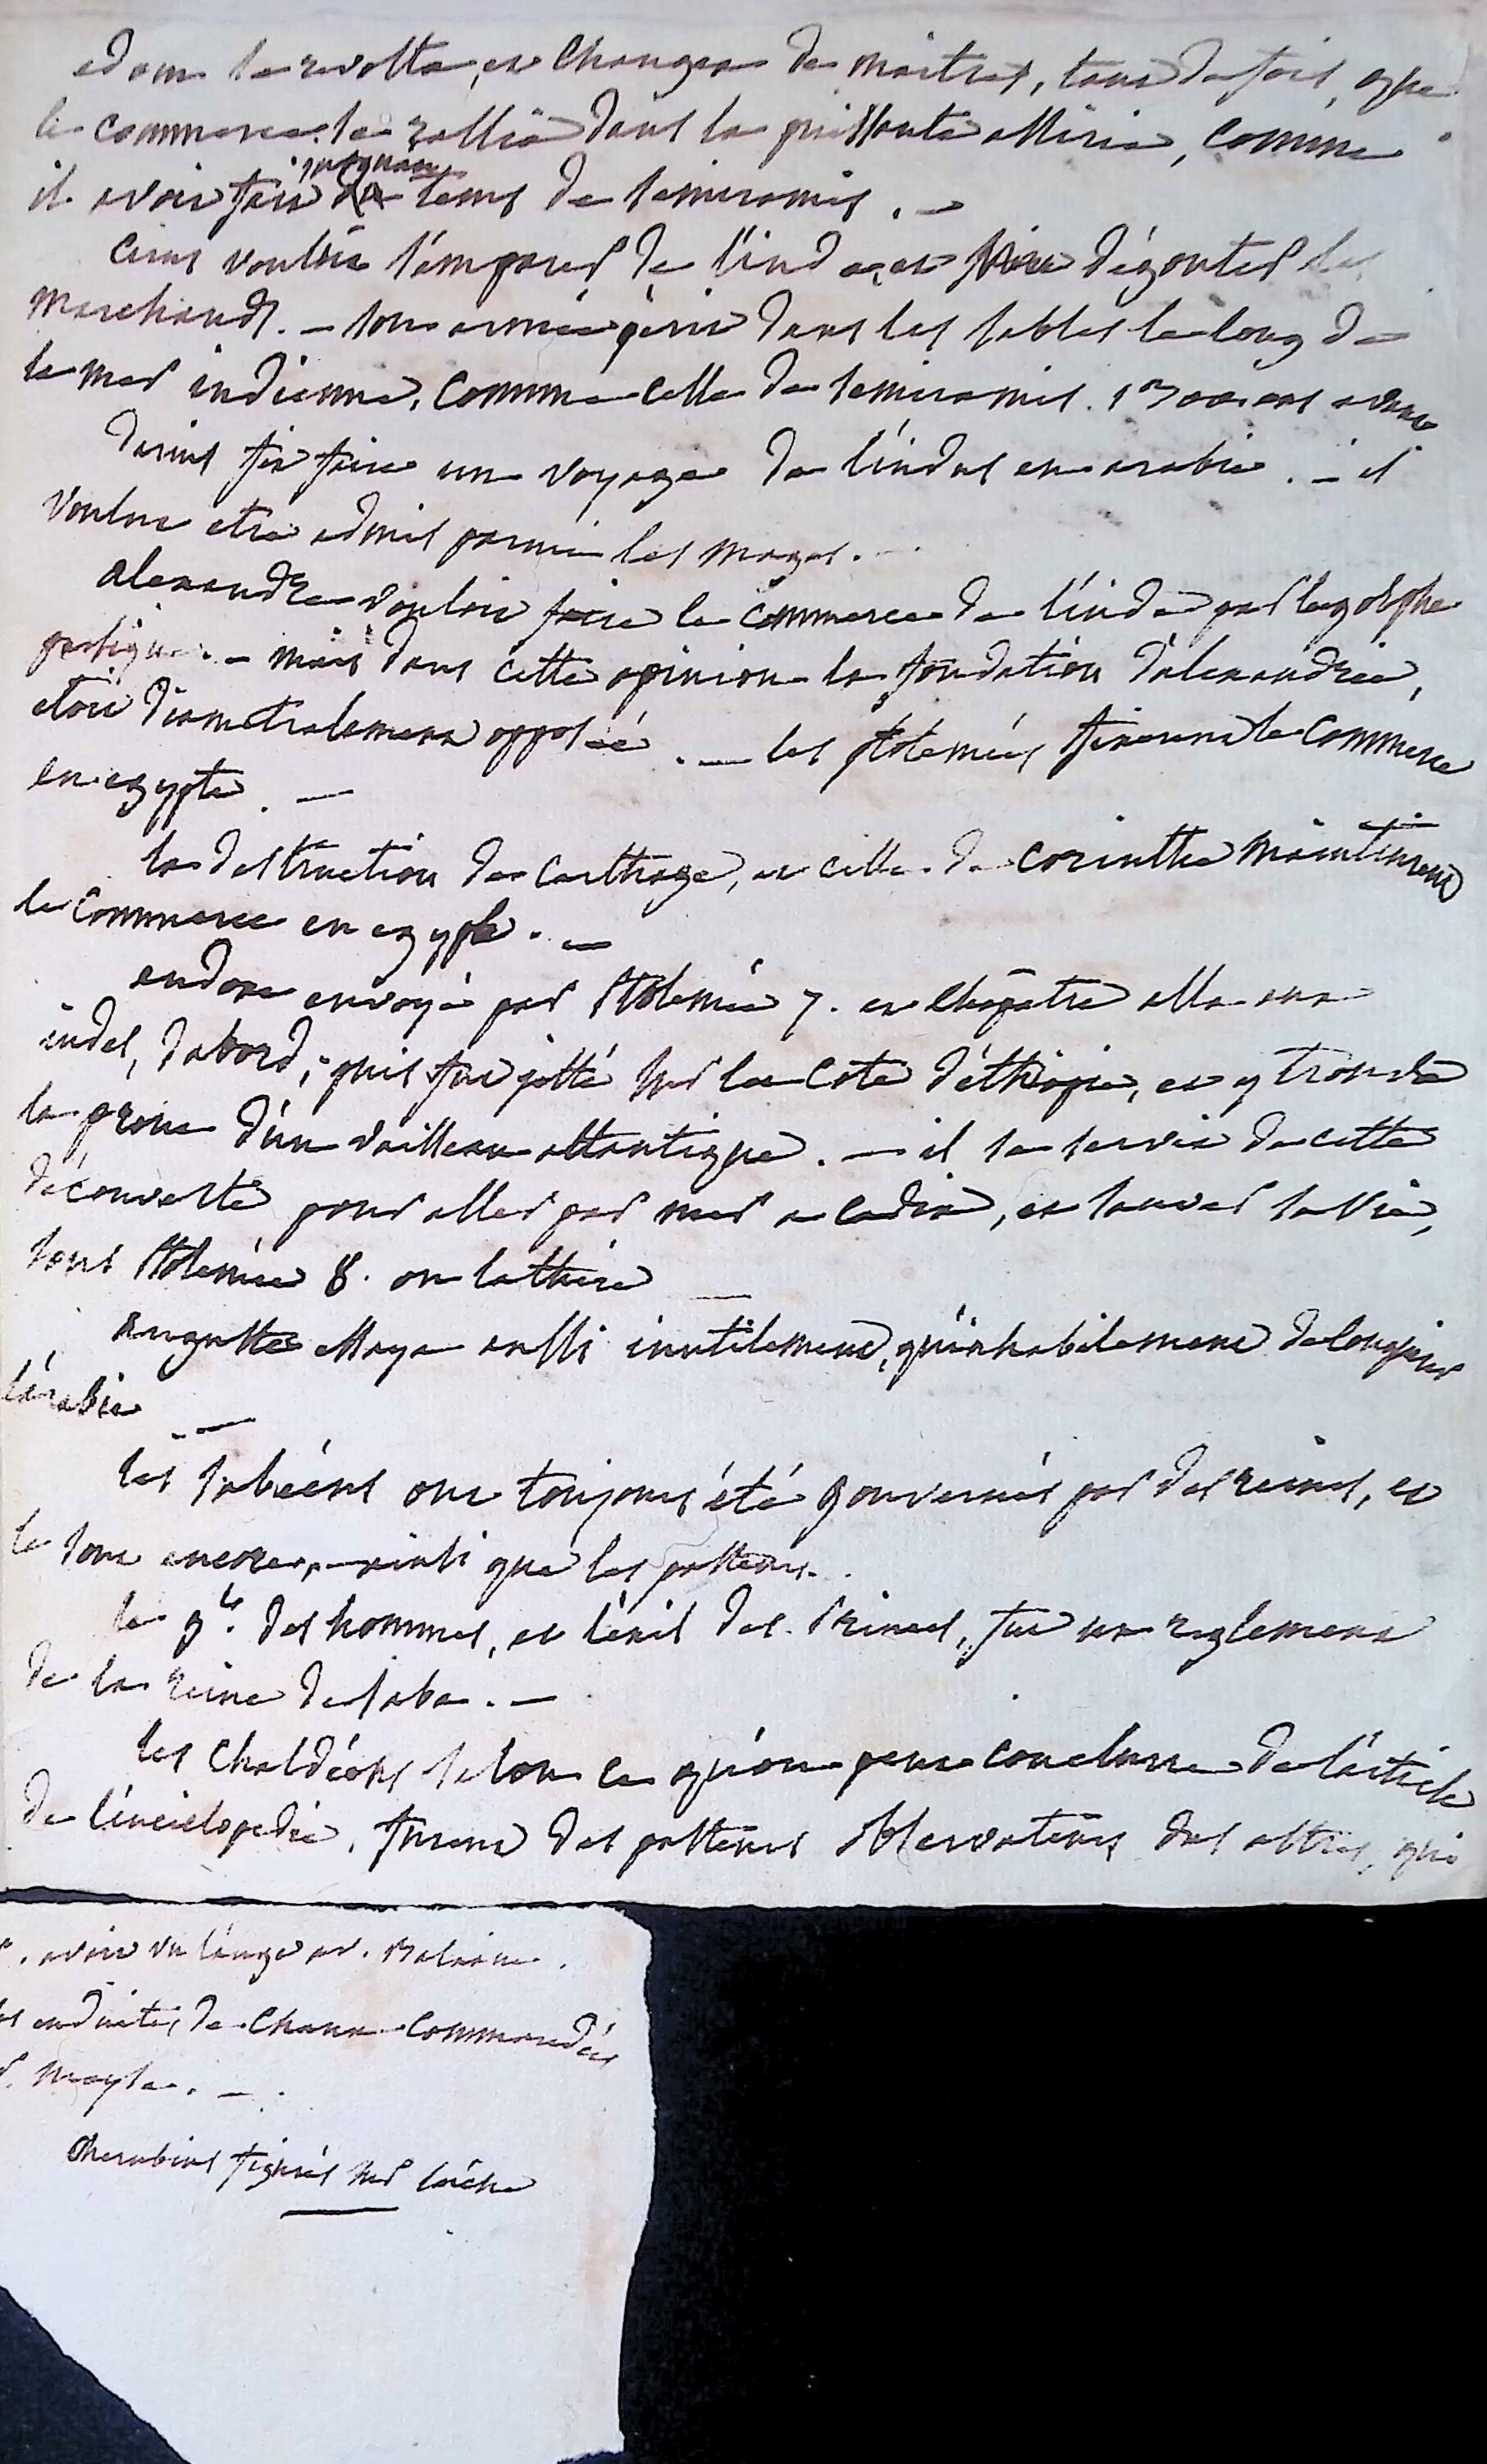 edom se revolta, et changea de maitres, tant de fois, que
le commerce se rallia dans la puissante assirie, comme
il avoit fait jusqu'au tems de semiramis. —
Cirus voulut s'emparer de l'inde, et faire dégouter les
marchands. — son armée périt dans les sables le long de
la mer indienne, comme celle de semiramis. 1300 ans avant
darius fit faire un voyage de l'indus en arabie. — il
voulut etre admis parmi les mages. —
alexandre vouloit faire le commerce de l'inde par le golphe
persique. — mais dans cette opinion la fondation d'alexandrie,
etoit diametralement opposée. — les ptolemées fixerent le commerce
en egypte. —
la destruction de carthage, et celle de corinthe maintinrent
le commerce en egypte. —
eudoxe envoyé par Ptolemée 7. et cléopatre alla aux
indes, d'abord; puis fut jetté sur la cote d'éthiopie, et y trouva
la proue d'un vaisseau atlantique. — il se servit de cette
découverte pour aller par mer a cadix, et sauver sa vie,
sous Ptolemée 8. ou lathire —
auguste essaya aussi inutilement, qu'inhabilement de conquérir
l'arabie —
les sabéens ont toujours été gouvernés par des reines, et
le sont encore, — ainsi que les pasteurs.
le gt. des hommes, et l'exil des Princes, fut un reglement
de la reine de saba. —
les chaldéens selon ce qu'on peut conclure de l'article
de l'enciclopedie, furent des pasteurs observateurs des astres, qui
avoir vu l'ange av. Balaam.
enduites de chaux commandées
moyse. —
Cherubins figurés sur l'arche